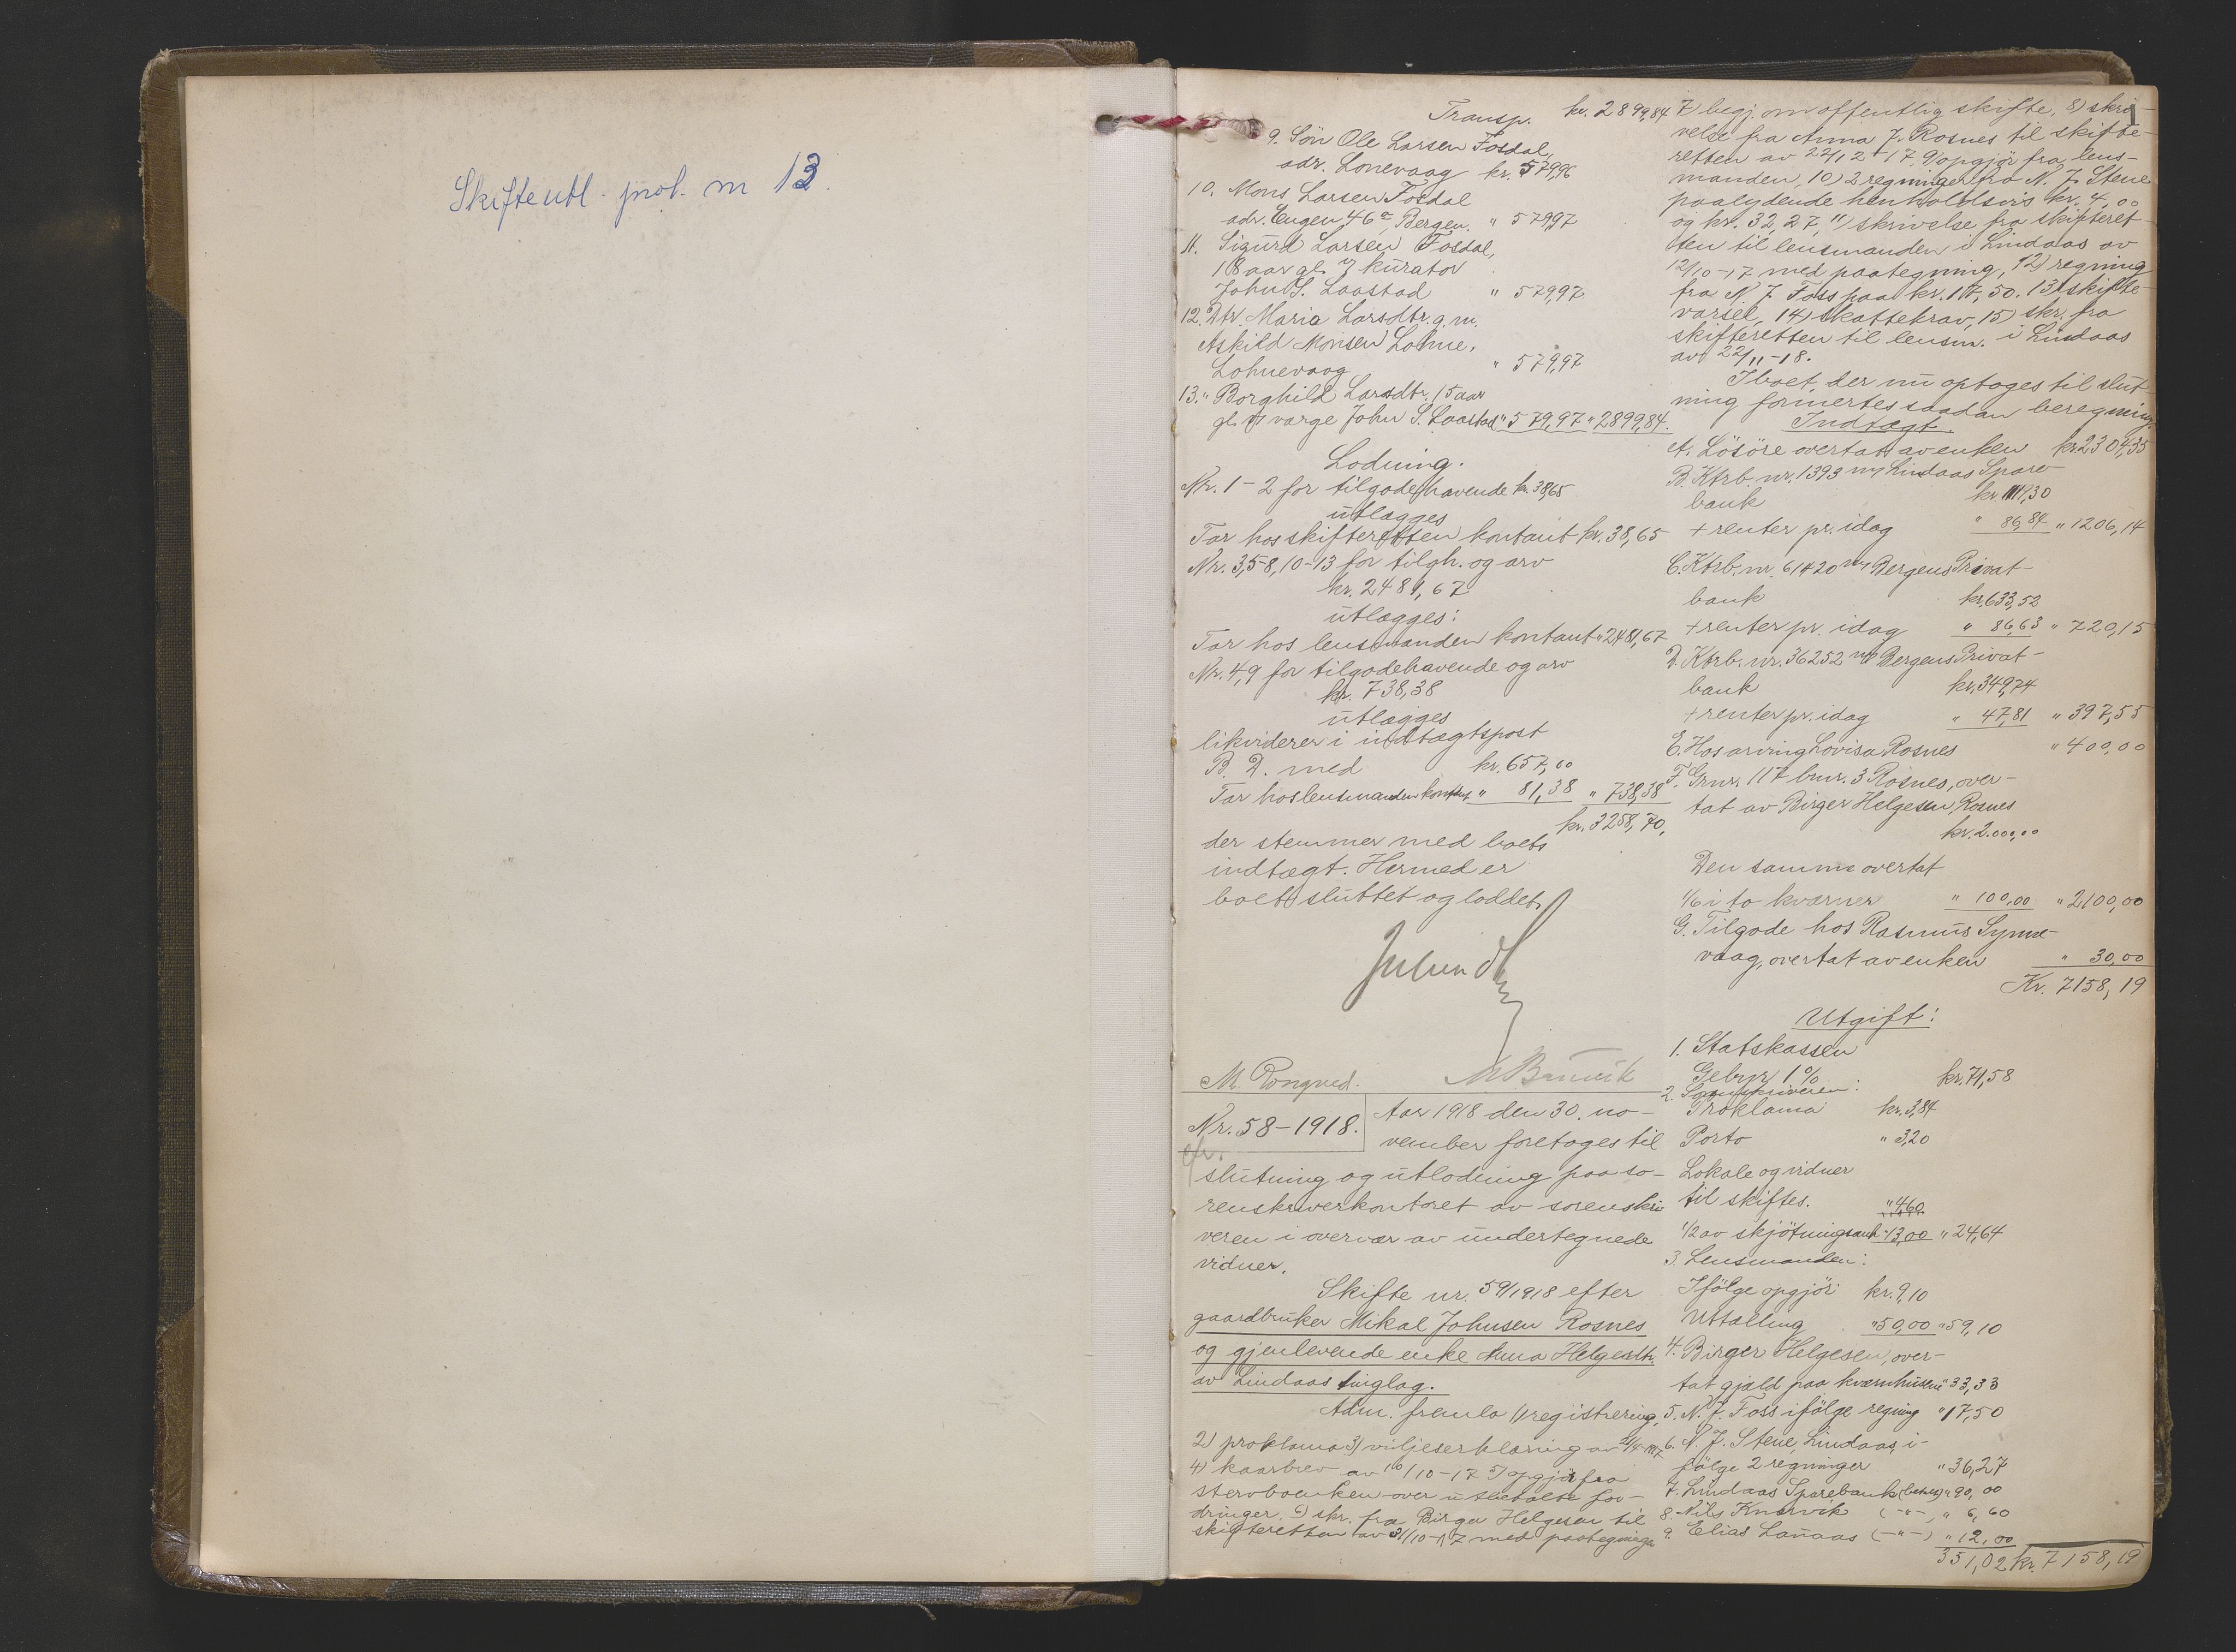 Skifteutl. prot. nr 13.
Transp. kr. 2899,84
9. Søn Ole Larsen Fosdal,
adr. Lonevaag kr. 579,96
10. Mons Larsen Fosdal
adr. Engen 46a, Bergen. " 579,97
11. Sigurd Larsen Fosdal,
18 aar gl. kurator
John S. Laastad " 579,97
12. Dtr. Maria Larsdtr. g. m.
Askild Monsen Lohne,
Lohnevaag " 579,97
13. " Borghild Larsdtr. 15 aar
gl. værge John S. Laastad " 579,97 " 2899,84.
Lodning.
Nr. 1-2 for tilgodehavende kr. 38,65
utlægges
Tar hos skifteretten kontant kr. 38,65
Nr. 3,5-8, 10-13 for tilgh. og arv
kr. 2481,67
utlægges:
Tar hos lensmanden kontant " 2481,67
Nr. 4,9 for tilgodehavende og arv
kr. 738,38
utlægges
likviderer i indtægtspost
B. D. med kr. 657,00
Tar hos lensmanden kontant " 81,38 " 738,38
kr. 3258,70.
der stemmer med boets
indtægt. Hermed er
boet sluttet og loddet.
M. Rongved. M Brunvik
Nr. 58-1918.
Aar 1918 den 30. no-
vember foretages til
slutning og utlodning paa so-
renskriverkontoret av sorenskri
veren i overvær av undertegnede
vidner.
Skifte nr. 59/1918 efter
gaardbruker Mikal Johnsen Rosnes
og gjenlevende enke Anna Helgesdtr.
av Lindaas tinglag.
Adm. fremla 1) registrering,
2) proklama 3) viljeserklæring av
4) kaarbrev av 16/10-17 5) opgjør fra
stervboenken over utbetalte for-
dringer. 6) skr. fra Birger Helgesen til
skifteretten av 31/10-17 med paategning
7) begj. om offentlig skifte, 8) skri-
velse fra Anna J. Rosnes til skifte-
retten av 22/12-17, 9) opgjør fra lens-
manden, 10) 2 regninger fra N. J. Stene
paalydende henholdsvis kr. 4,00
og kr. 32,27, 11) skrivelse fra skifteret-
ten til lensmanden i Lindaas av
12/10-17 med paategning, 12) regning
fra N. J. Foss paa kr. 17,50. 13) skifte-
varsel, 14) skattekrav, 15) skr. fra
skifteretten til lensm. i Lindaas
av 22/11-18.
I boet, der nu optages til slut-
ning formertes saadan beregning
Indtægt.
A. Løsøre overtat av enken kr. 2304,35
B. Ktrb. nr. 1393 m/ Lindaas Spare-
bank kr. 1119,30
+ renter pr. idag " 86,84 " 1206,14
C. Ktrb. nr. 61420 m/ Bergens Privat-
bank kr. 633,52
+ renter pr. idag " 86,63 " 720,15
D. Ktrb. nr. 36252 m/ Bergens Privat-
bank kr. 349,74
+ renter pr. idag " 47,81 " 397,55
E. Hos arving Lovisa Rosnes " 400,00
F. Grnr. 117 bnr. 3 Rosnes, over-
tat av Birger Helgesen, Rosnes
kr. 2.000,00
Den samme overtat
1/6 i to kværner " 100,00 " 2100,00
G. Tilgode hos Rasmus Synne-
vaag, overtat av enken " 30,00
Kr. 7158,19
Utgift:
1. Statskassen
Gebyr 1% kr. 71,58
2. Sorenskriveren:
Proklama kr. 3,84
Porto " 3,20
Lokale og vidner
til skiftes. " 4,60
1/2 av skjøtningsomk. " 13,00 " 24,64
3. Lensmanden:
Ifølge opgjør kr. 9,10
Uttælling " 50,00 " 59,10
4. Birger Helgesen, over-
tat gjæld paa kvernhusene " 33,33
5. N. J. Foss ifølge regning " 17,50
6. N. J. Stene, Lindaas, i-
følge 2 regninger " 36,27
7. Lindaas Sparebank " 90,00
8. Nils Knarvik (-"-) " 6,60
9. Elias Lanaas (-"-) " 12,00
351,02 kr. 7158,19